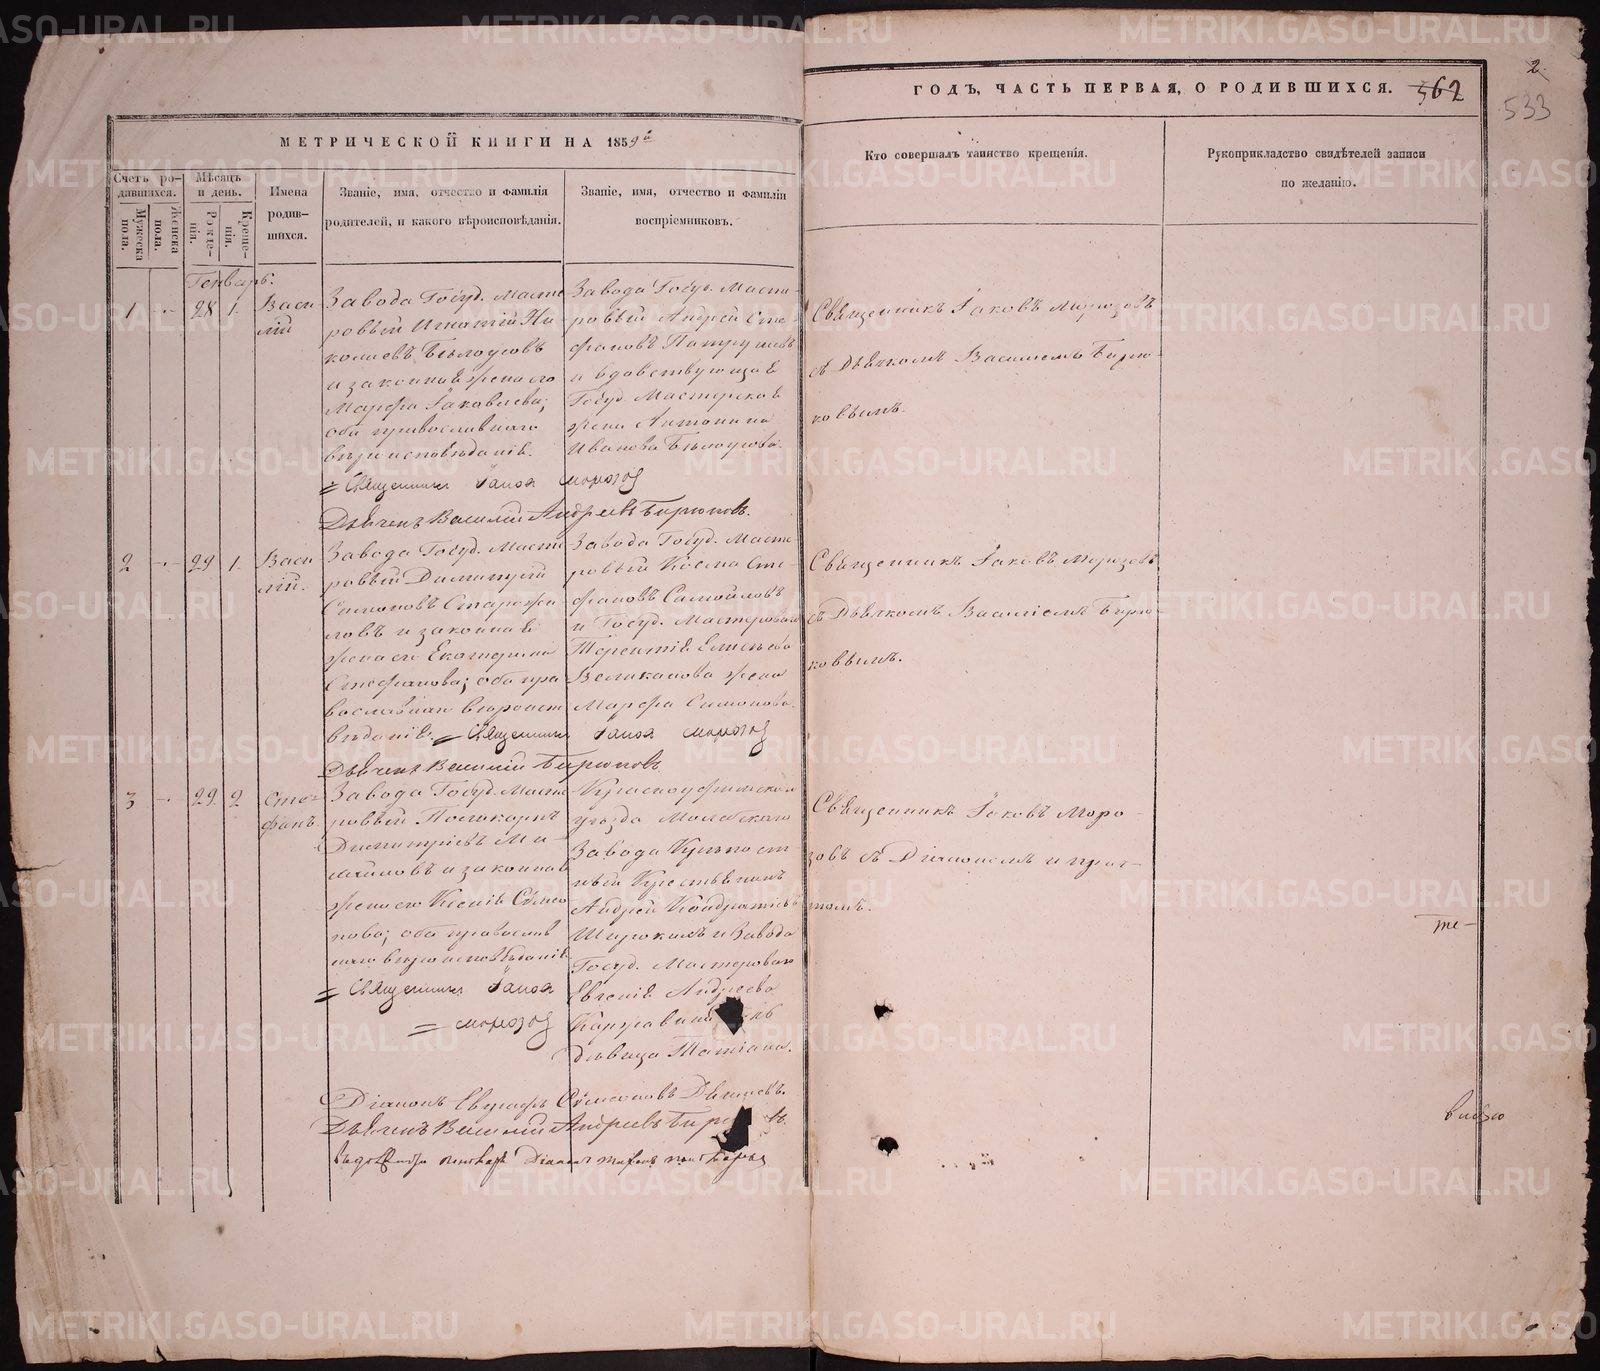 МЕТРИЧЕСКОЙ КНИГИ НА 1859й
ГОДЪ, ЧАСТЬ ПЕРВАЯ, О РОДИВШИХСЯ.
562
2
533
Счетъ ро-
дившихся.
Мужеска
пола.
Женска
пола.
Мѣсяцъ
и день.
Рожде-
нія.
Креще-
нія.
Имена
родив-
шихся.
Званіе, имя, отчество и фамилія
родителей, и какого вѣроисповѣданія.
Званіе, имя, отчество и фамилія
воспріемниковъ.
Кто совершалъ таинство крещенія.
Рукоприкладство свидѣтелей записи
по желанію.
Генварь.
1
28
1
Васи-
лій
Завода Госуд. Масте
ровый Игнатій Ни
колаевъ Бѣлоусовъ
и законная жена его
Марфа Іаковлева;
оба православнаго
вѣроисповѣданія.
Завода Госуд. Масте-
ровый Андрей Сте-
фановъ Патрушевъ
и вдовствующая
Госуд. Мастерская
жена Антонина
Иванова Бѣлоусова.
Священникъ Іаковъ Морозовъ
съ Дьячкомъ Василіемъ Бирю-
ковымъ.
Священникъ Іаков Морозов
Дьячекъ Василій Андреевъ Бирюковъ.
2
29
1
Васи
лій.
Завода Госуд. Масте
ровый Димитрій
Симоновъ Старожи
ловъ и законная
жена его Екатерина
Стефанова; оба пра
вославнаго вѣроисп
вѣданія.
Завода Госуд. Масте-
ровый Косма Сте-
фановъ Самойловъ
и Госуд. Мастероваго
Терентія Елисѣева
Великанова жена
Марфа Симонова.
Священникъ Іаковъ Морозовъ
съ Дьячкомъ Василіемъ Бирю-
ковымъ.
Священникъ Іаков Морозов
Дьячекъ Василій Бирюковъ
3
29
2
Сте-
фанъ.
Завода Госуд. Масте
ровый Поликарпъ
Димитріевъ
и законная
жена его Ксенія Симео
нова; оба православ
наго вѣроисповѣданія.
Красноуфимскаго
уѣзда Молебскаго
Завода Крѣпост
ный Крестьянинъ
Андрей Кондратьевъ
Широкихъ и Завода
Госуд. Мастероваго
Евгенія Андреева
дѣвица Татіана.
Священникъ Іаковъ Моро-
зовъ съ Діакономъ и прич-
томъ.
Священникъ Іаков
Морозов
Діаконъ Евграфъ Симеоновъ
Дьячекъ Василій Андреевъ
те-